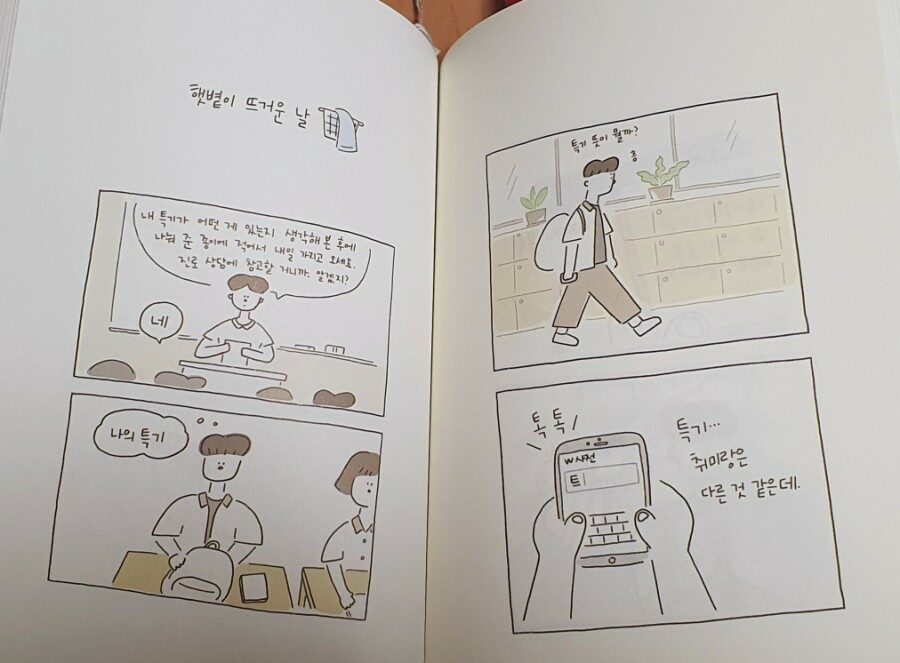 햇볕이 뜨거운 날
내 특기가 어떤 게 있는지 생각해 본 후에
나눠 준 종이에 적어서 내일 가지고 오세요.
진로 상담에 참고할 거니까. 알겠지?
네
나의 특기
특기 뜻이 뭘까?
흠
톡 톡
W사전
트
특기…
취미랑은
다른 것 같은데.